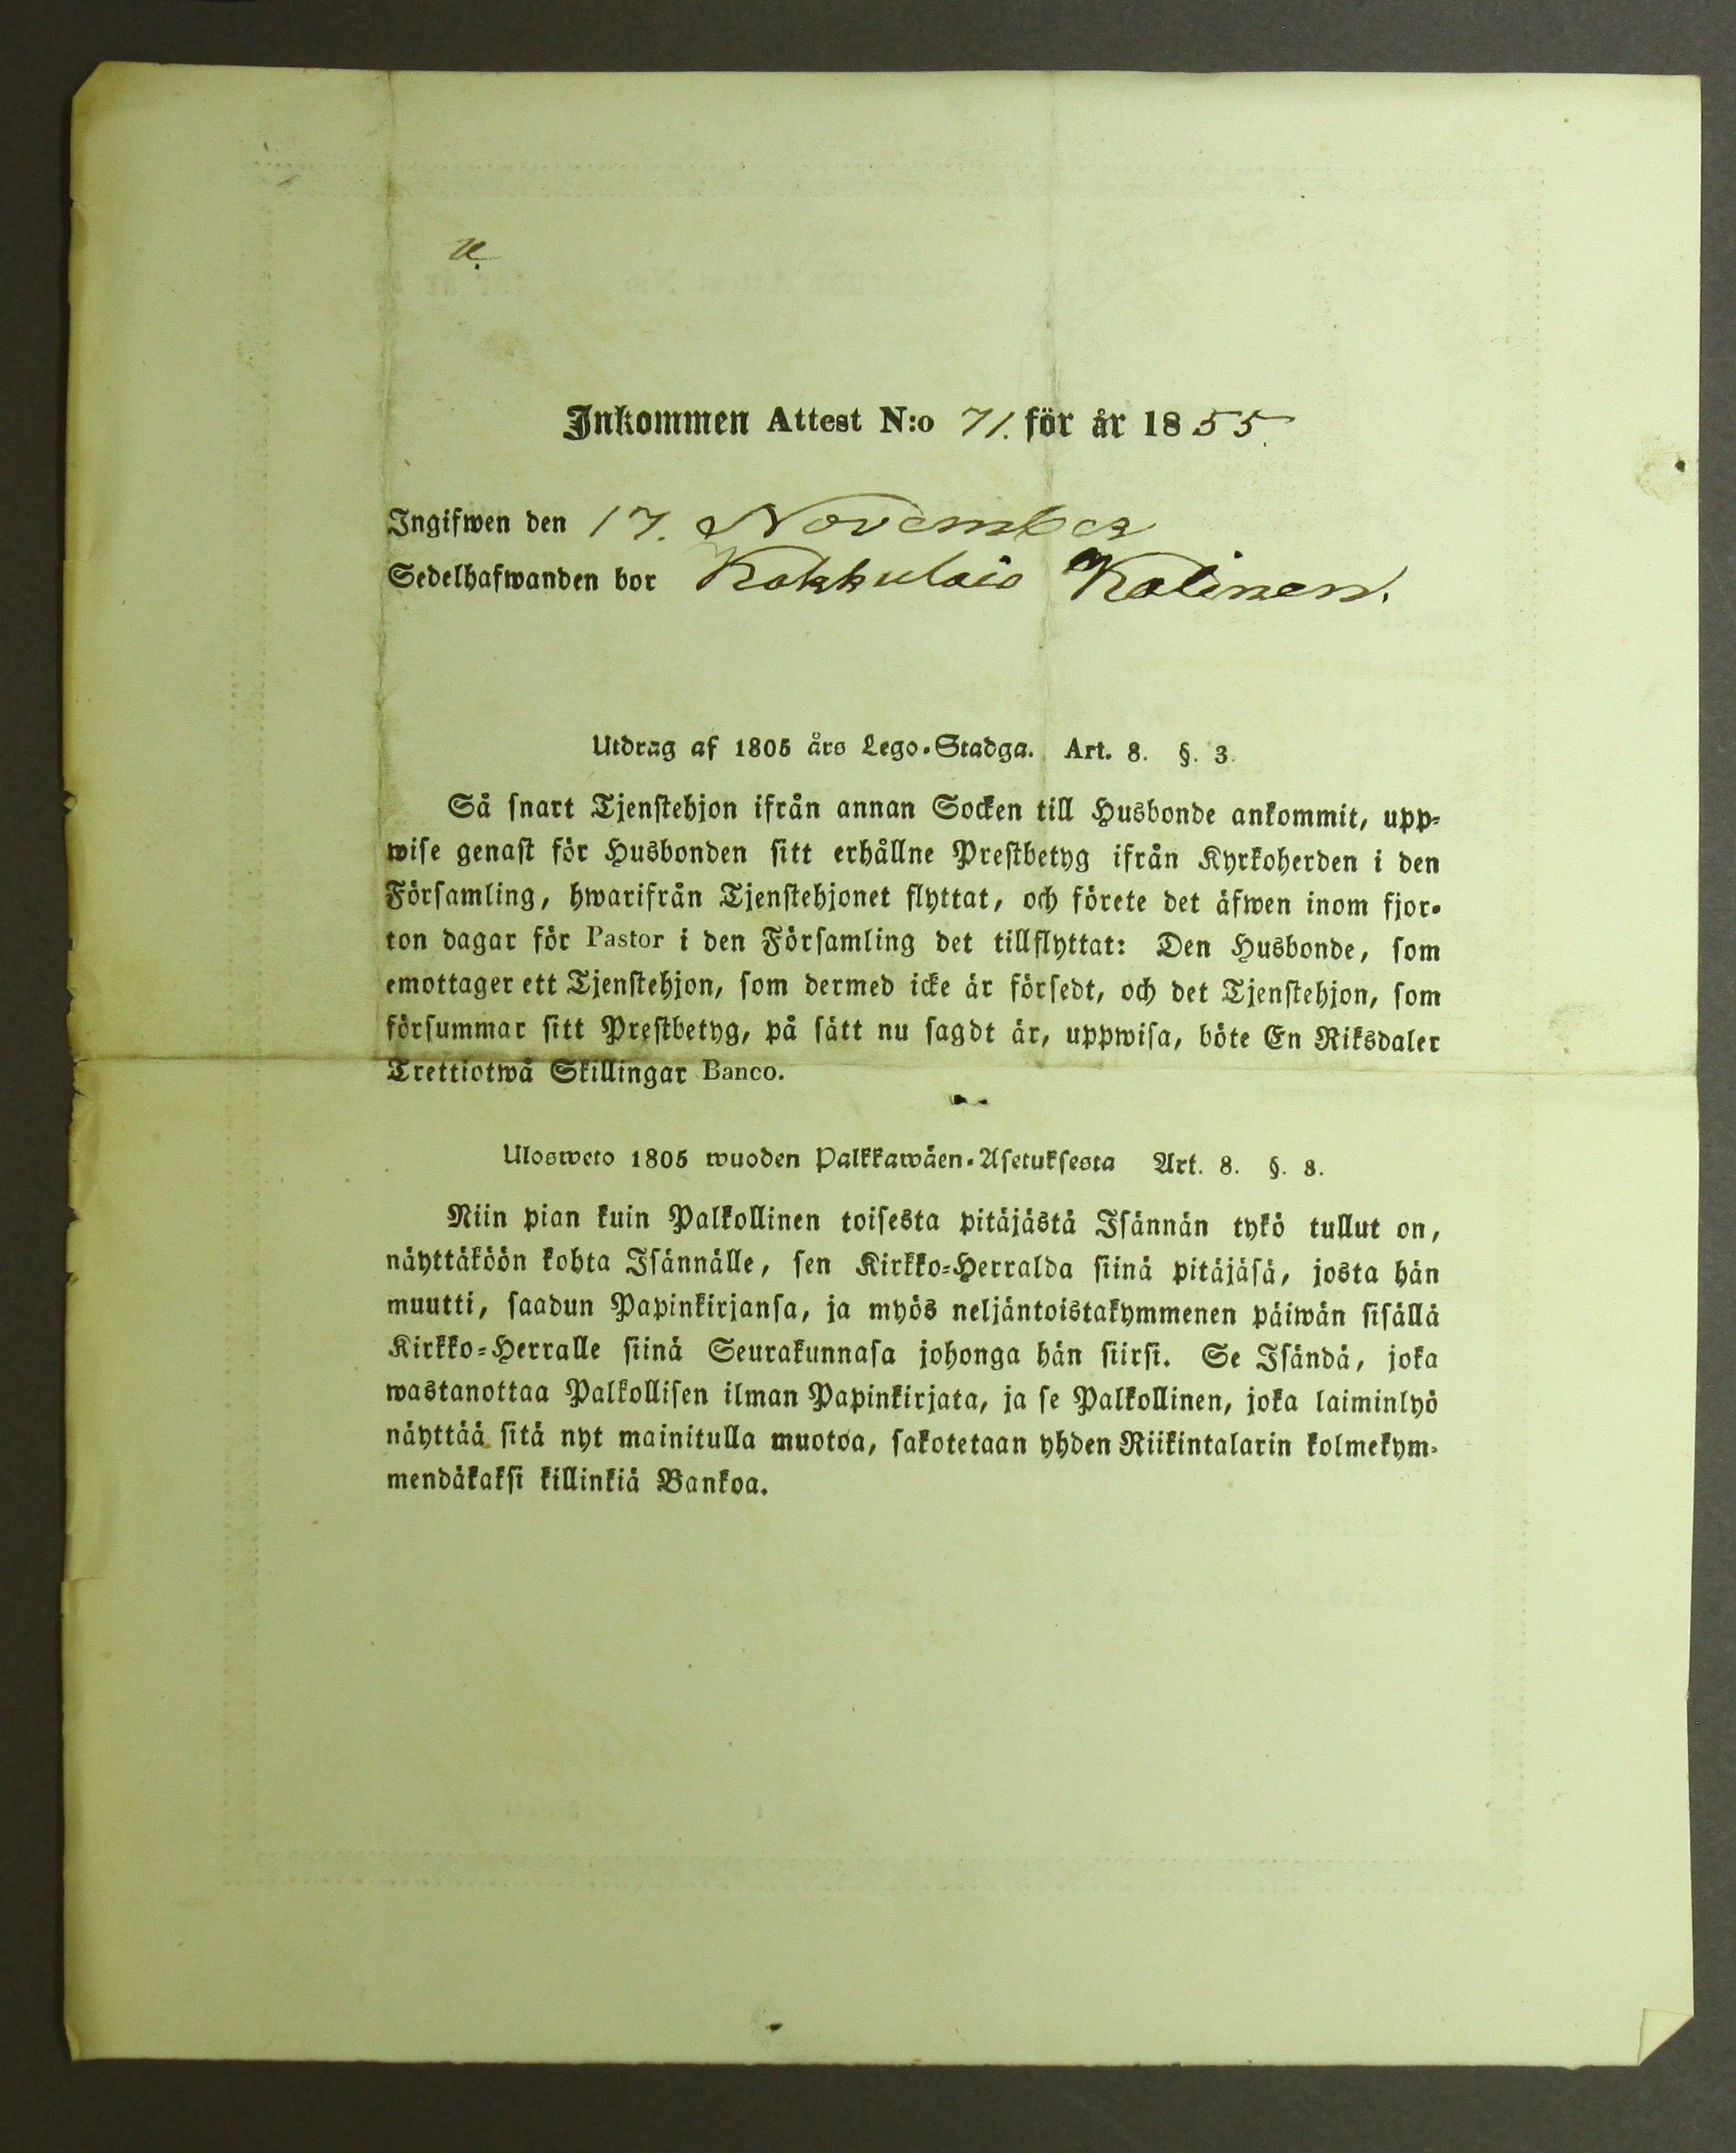 Inkommen Attest N:o 71. för år 1855.
Ingifwen den 17. November
Sedelhafwanden bor Kokkulais Kalinen.
Utdrag af 1805 års Lego-Stadga. Art. 8. §. 3.
Så snart Tjenstehjon ifrån annan Socken till Husbonde ankommit, upp-
wise genast för Husbonden sitt erhållne Prestbetyg ifrån Kyrkoherden i den
Församling, hwarifrån Tjenstehjonet flyttat, och förete det äfwen inom fjor-
ton dagar för Pastor i den Församling det tillflyttat: Den Husbonde, som
emottager ett Tjenstehjon, som dermed icke är försedt, och det Tjenstehjon, som
försummar sitt Prestbetyg, på sätt nu sagdt är, uppwisa, böte En Riksdaler
Trettiotwå Skillingar Banco.
Ulosweto 1805 wuoden Palkkawäen-Asetuksesta Art. 8. §. 3.
Niin pian kuin Palkollinen toisesta pitäjästä Isännän tykö tullut on,
näyttäköön kohta Isännälle, sen Kirkko-Herralda siinä pitäjäsä, josta hän
muutti, saadun Papinkirjansa, ja myös neljäntoistakymmenen päiwän sisällä
Kirkko-Herralle siinä Seurakunnasa johonga hän siirsi. Se Isändä, joka
wastanottaa Palkollisen ilman Papinkirjata, ja se Palkollinen, joka laiminlyö
näyttää sitä nyt mainitulla muotoa, sakotetaan yhden Riikintalarin kolmekym-
mendäkaksi killinkiä Bankoa.